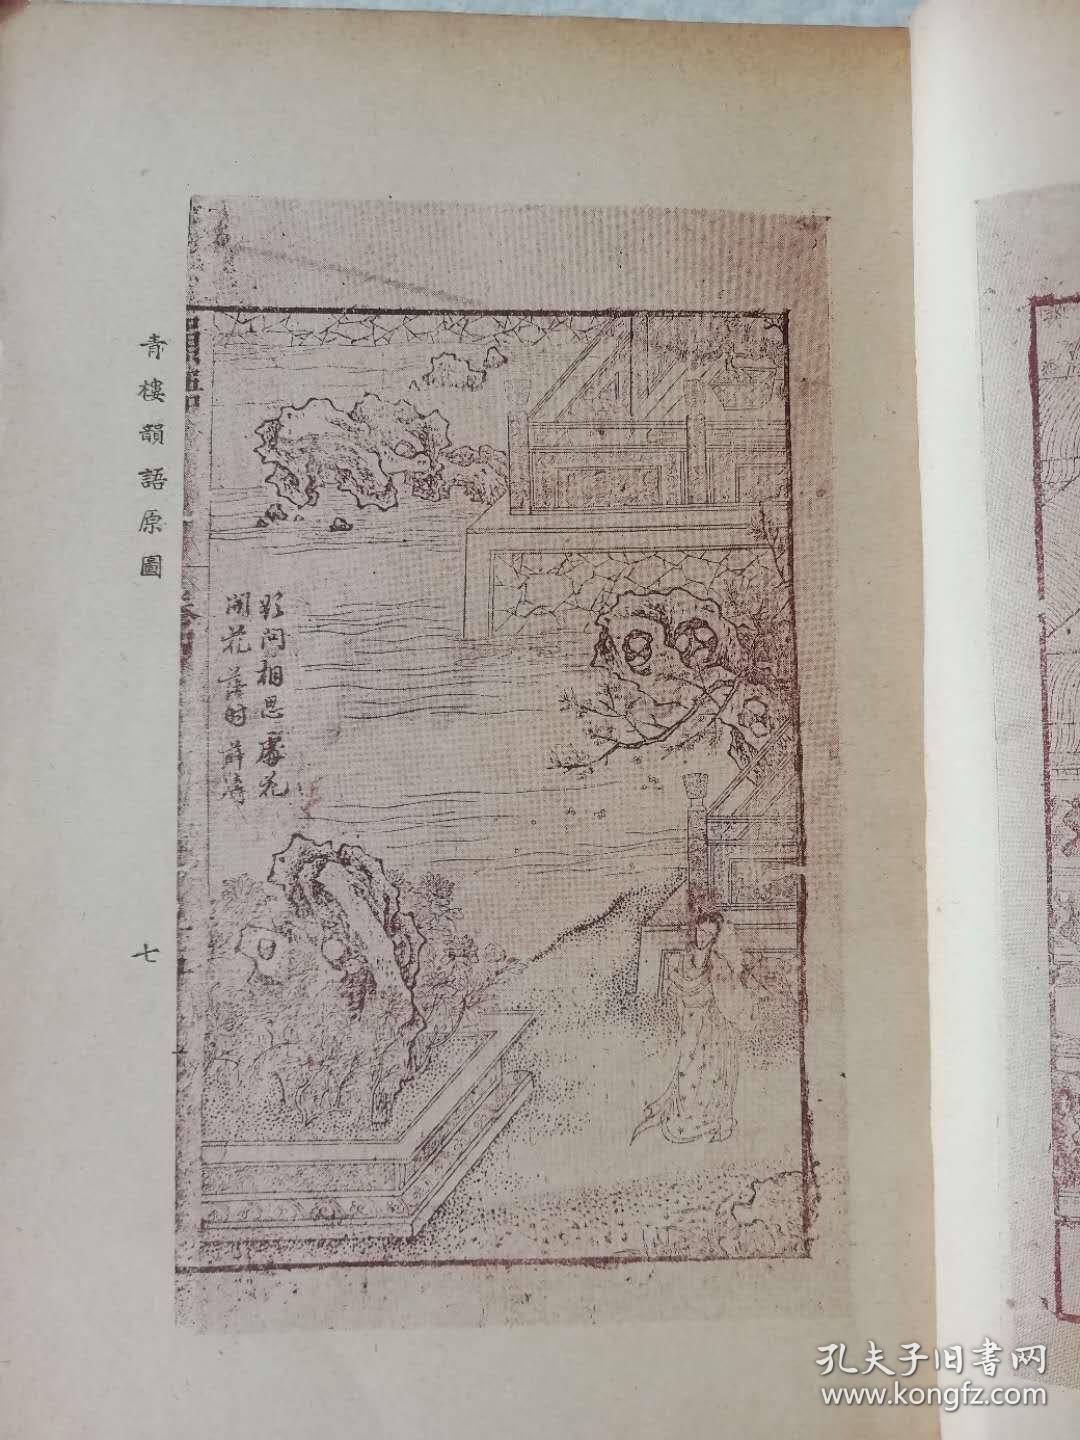 青樓韻語原圖
七
欲問相思處花
開花落時薛濤
卷四
孔夫子旧書网
www.kongfz.com